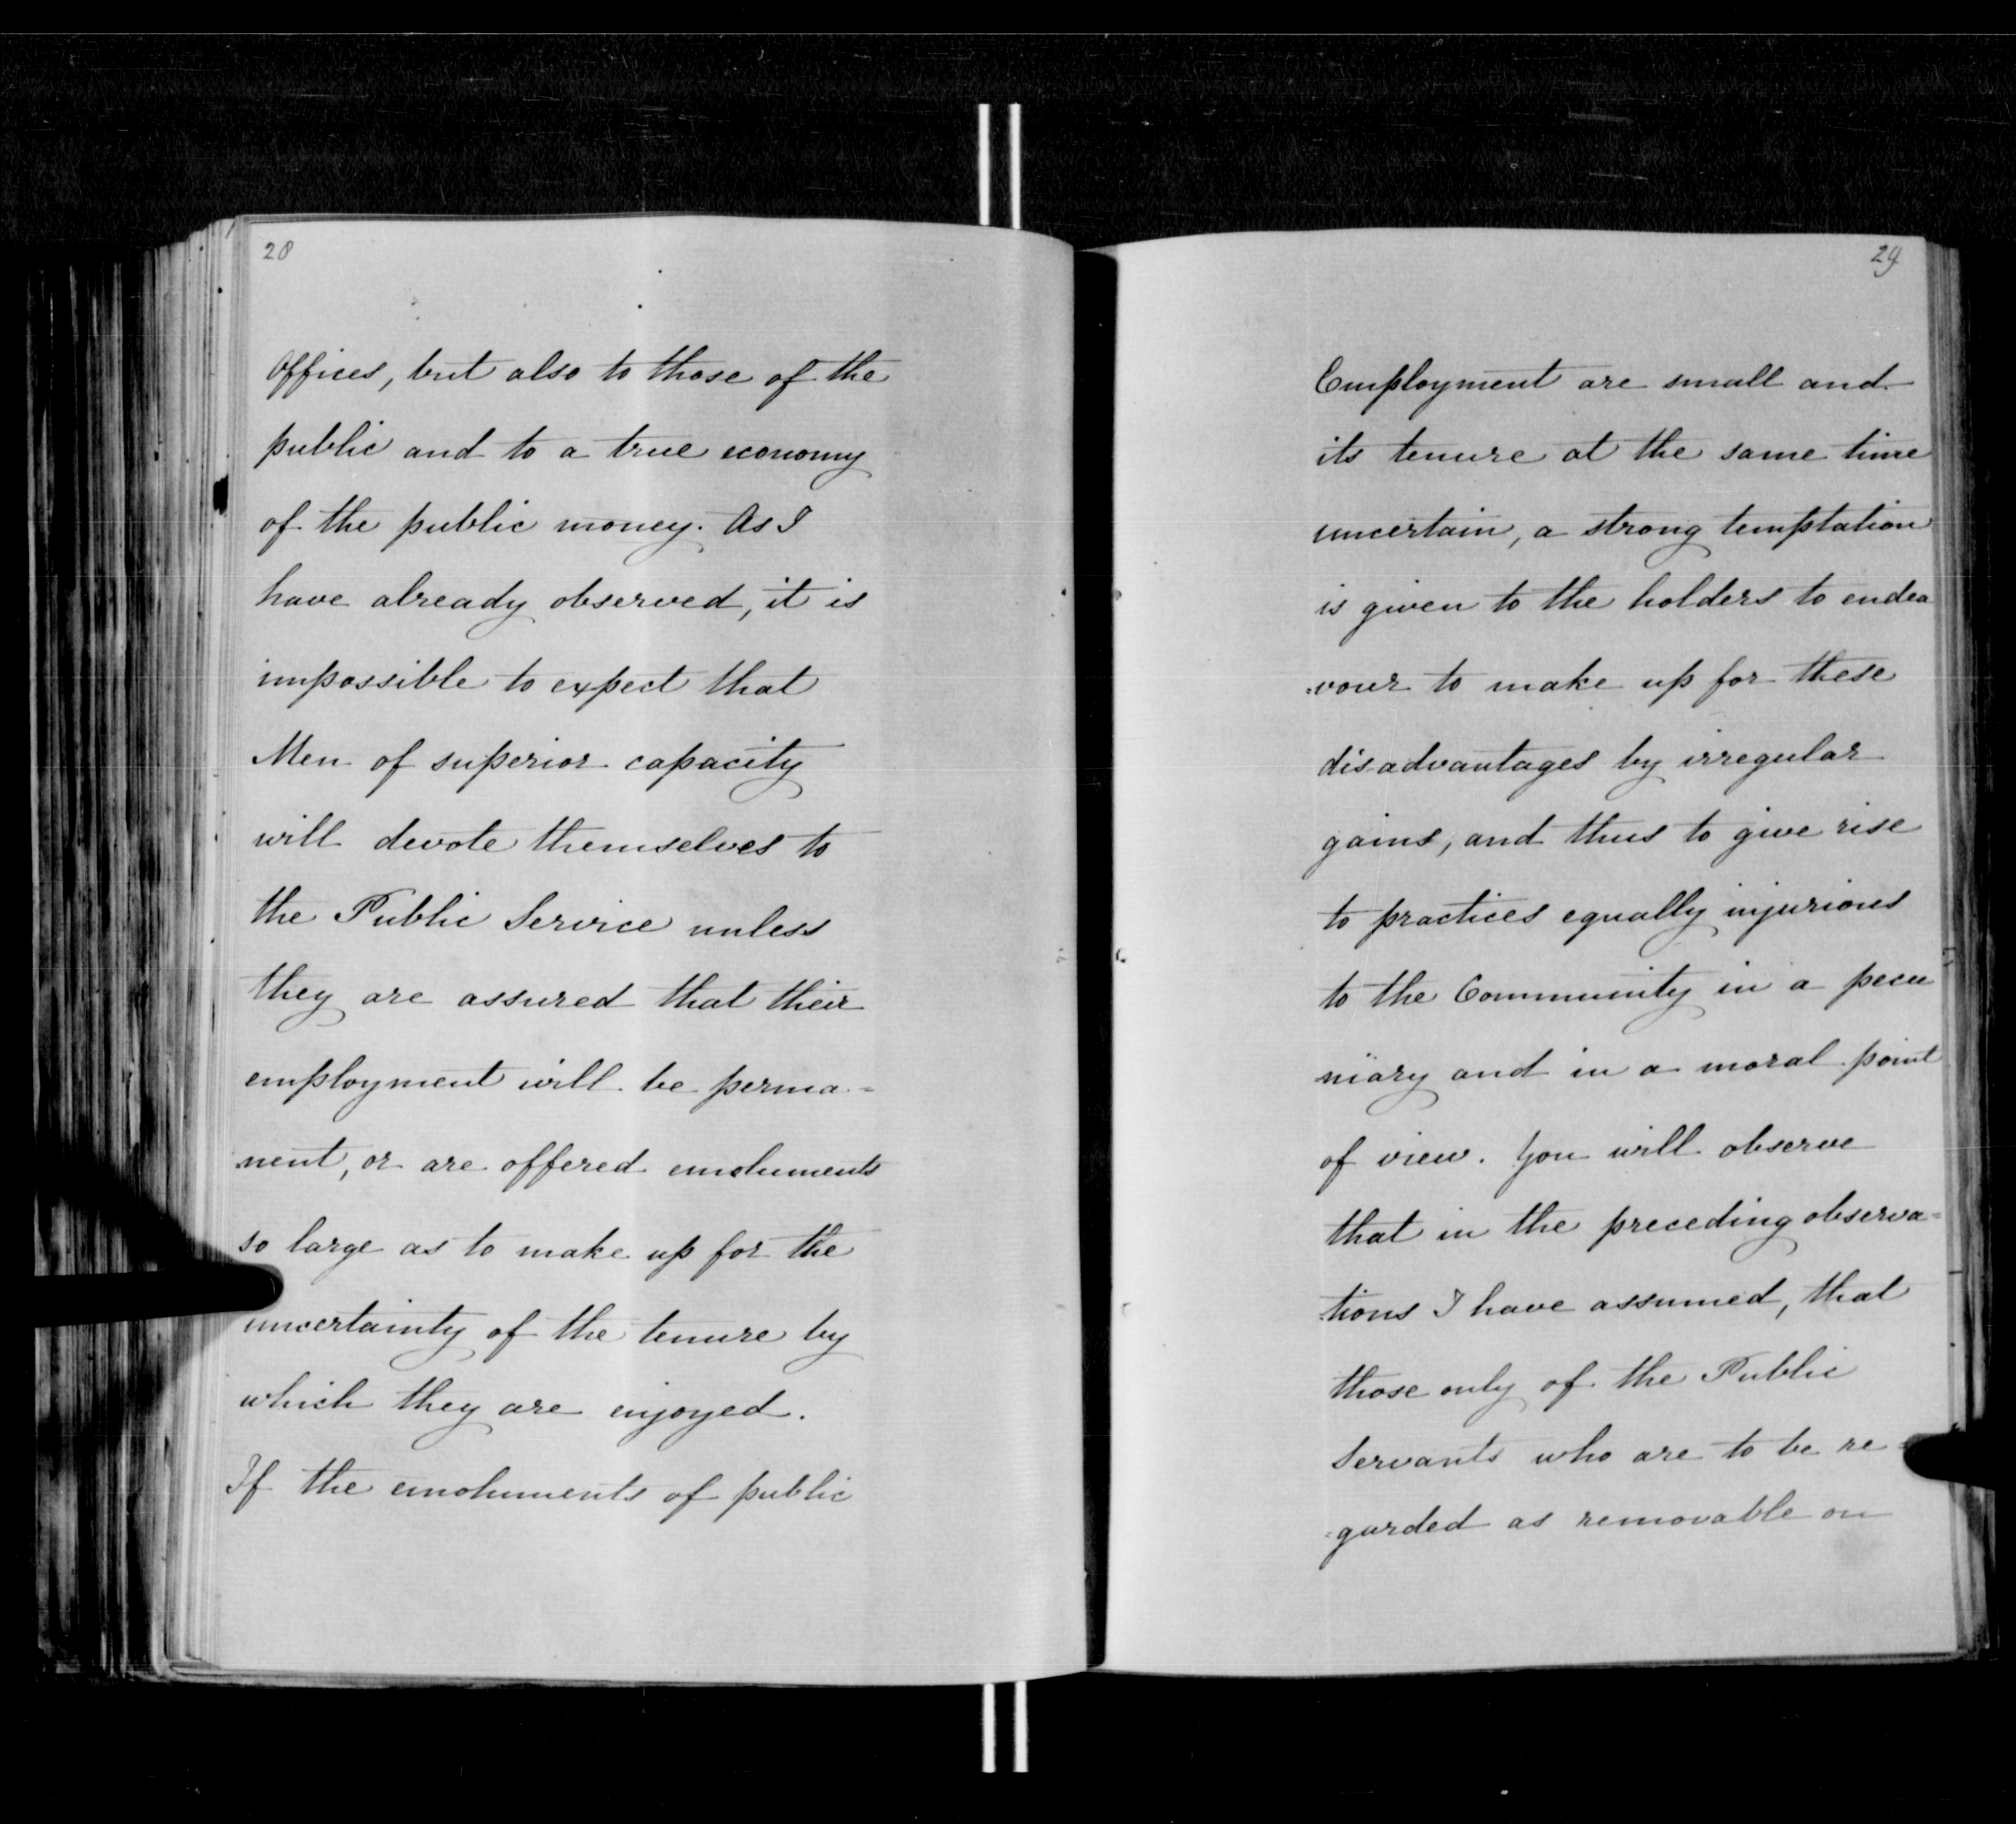 28
offices, but also to those of the
public and to a true economy
of the public money. As I
have already observed, it is
impossible to expect that
Men of superior capacity
will devote themselves to
the Public Service unless
they are assured that their
employment will be perma=
nent, or are offered emoluments
so large as to make up for the
uncertainty of the tenure by
which they are enjoyed.
If the emoluments of public
29
Employment are small and
its tenure at the same time
uncertain, a strong temptation
is given to the holders to endea
=vour to make up for these
disadvantages by irregular
gains, and thus to give rise
to practices equally injurious
to the Community in a pecu
niary and in a moral point
of view. You will observe
that in the preceding observa=
tions I have assumed, that
those only of the Public
Servants who are to be re=
=garded as removable on